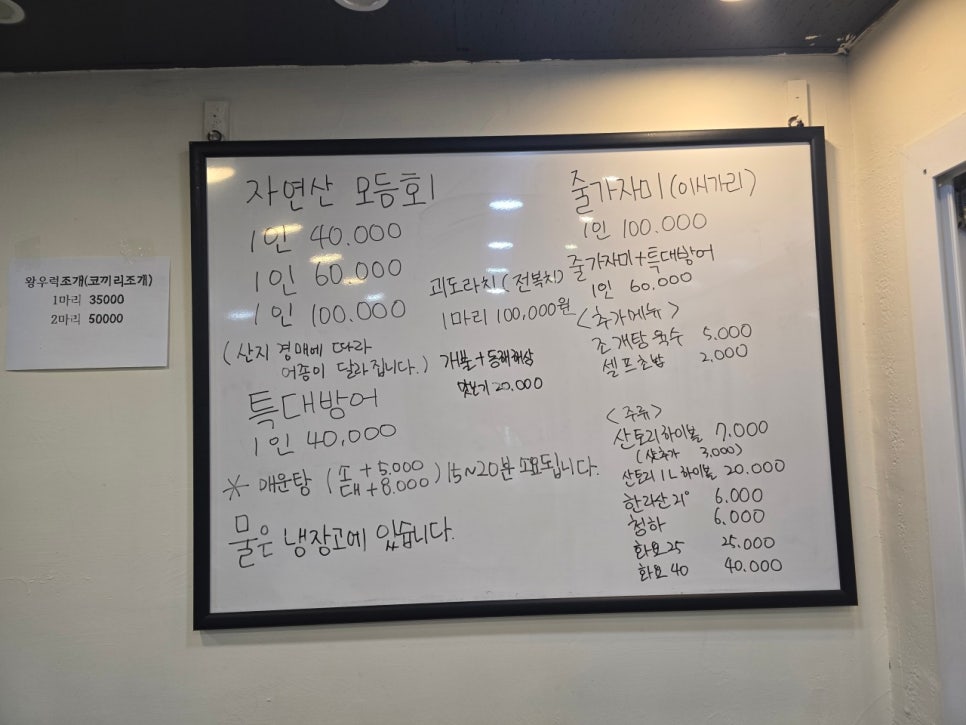 왕우럭조개(코끼리조개)
1마리 35000
2마리 50000
자연산 모듬회
1인 40.000
1인 60.000
1인 100.000
(산지 경매에 따라
어종이 달라집니다.)
특대방어
1인 40,000
* 매운탕 (소 +5.000 대 +8.000) 15~20분 소요됩니다.
물은 냉장고에 있습니다.
괴도라치 (전복치)
1마리 100,000원
개불+동해해삼
맛보기 20,000
줄가자미(이시가리)
1인 100.000
줄가자미+특대방어
1인 60.000
<추가메뉴>
조개탕 국수 5,000
셀프초밥 2,000
<주류>
산토리 하이볼 7,000
(샷추가 3,000)
산토리 1L 하이볼 20.000
한라산 21° 6.000
청하 6,000
화요 25 25.000
화요 40 40.000